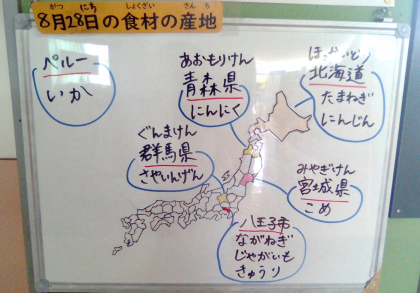 8月28日の食材の産地
がつ にち しょくざい さんち
ペルー
いか
あおもりけん
青森県
にんにく
ほっかいどう
北海道
たまねぎ
にんじん
ぐんまけん
群馬県
さやいんげん
みやぎけん
宮城県
こめ
八王子市
ながねぎ
じゃがいも
きゅうり